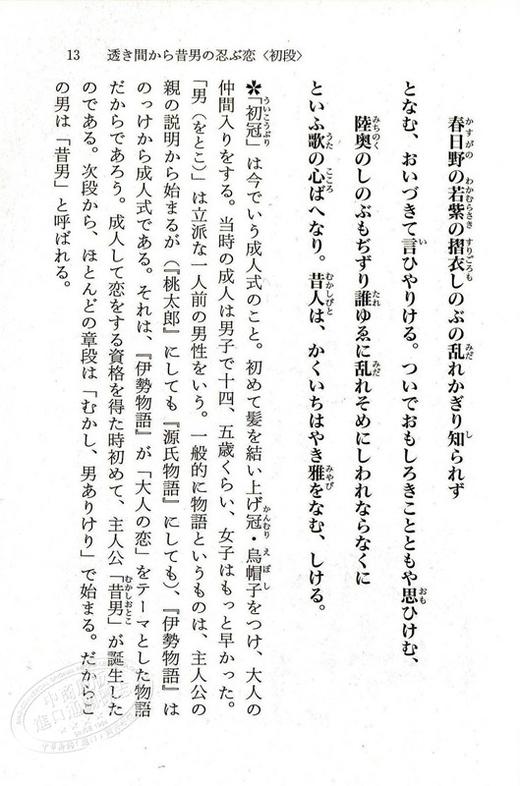 13　透き間から昔男の忍ぶ恋〈初段〉
春日野の若紫の摺衣しのぶの乱れかぎり知られず
となむ、おいづきて言ひやりける。ついでおもしろきことともや思ひけむ、
陸奥のしのぶもぢずり誰ゆゑに乱れそめにしわれならなくに
といふ歌の心ばへなり。昔人は、かくいちはやき雅をなむ、しける。
✽「初冠」は今でいう成人式のこと。初めて髪を結い上げ冠・烏帽子をつけ、大人の
仲間入りをする。当時の成人は男子で十四、五歳くらい、女子はもっと早かった。
「男（をとこ）」は立派な一人前の男性をいう。一般的に物語というものは、主人公の
親の説明から始まるが（『桃太郎』にしても『源氏物語』にしても）、『伊勢物語』は
のっけから成人式である。それは、『伊勢物語』が「大人の恋」をテーマとした物語
だからであろう。成人して恋をする資格を得た時初めて、主人公「昔男」が誕生した
のである。次段から、ほとんどの章段は「むかし、男ありけり」で始まる。だからこ
の男は「昔男」と呼ばれる。